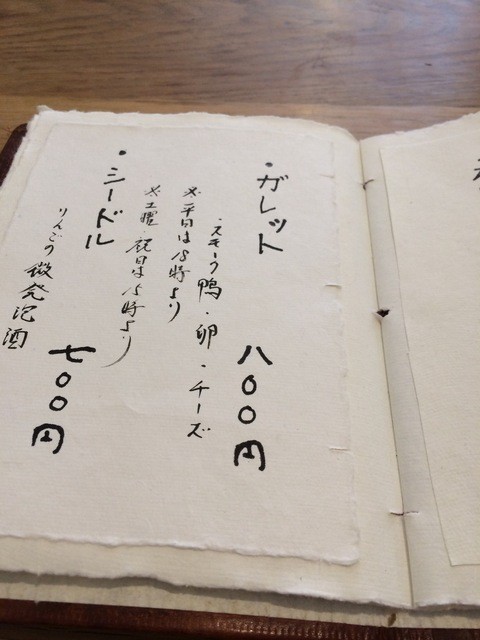 ・ガレット 八〇〇円
・スモーク鴨・卵・チーズ
※平日は15時より
※土曜・祝日は15時より
・シードル 七〇〇円
りんごの微発泡酒